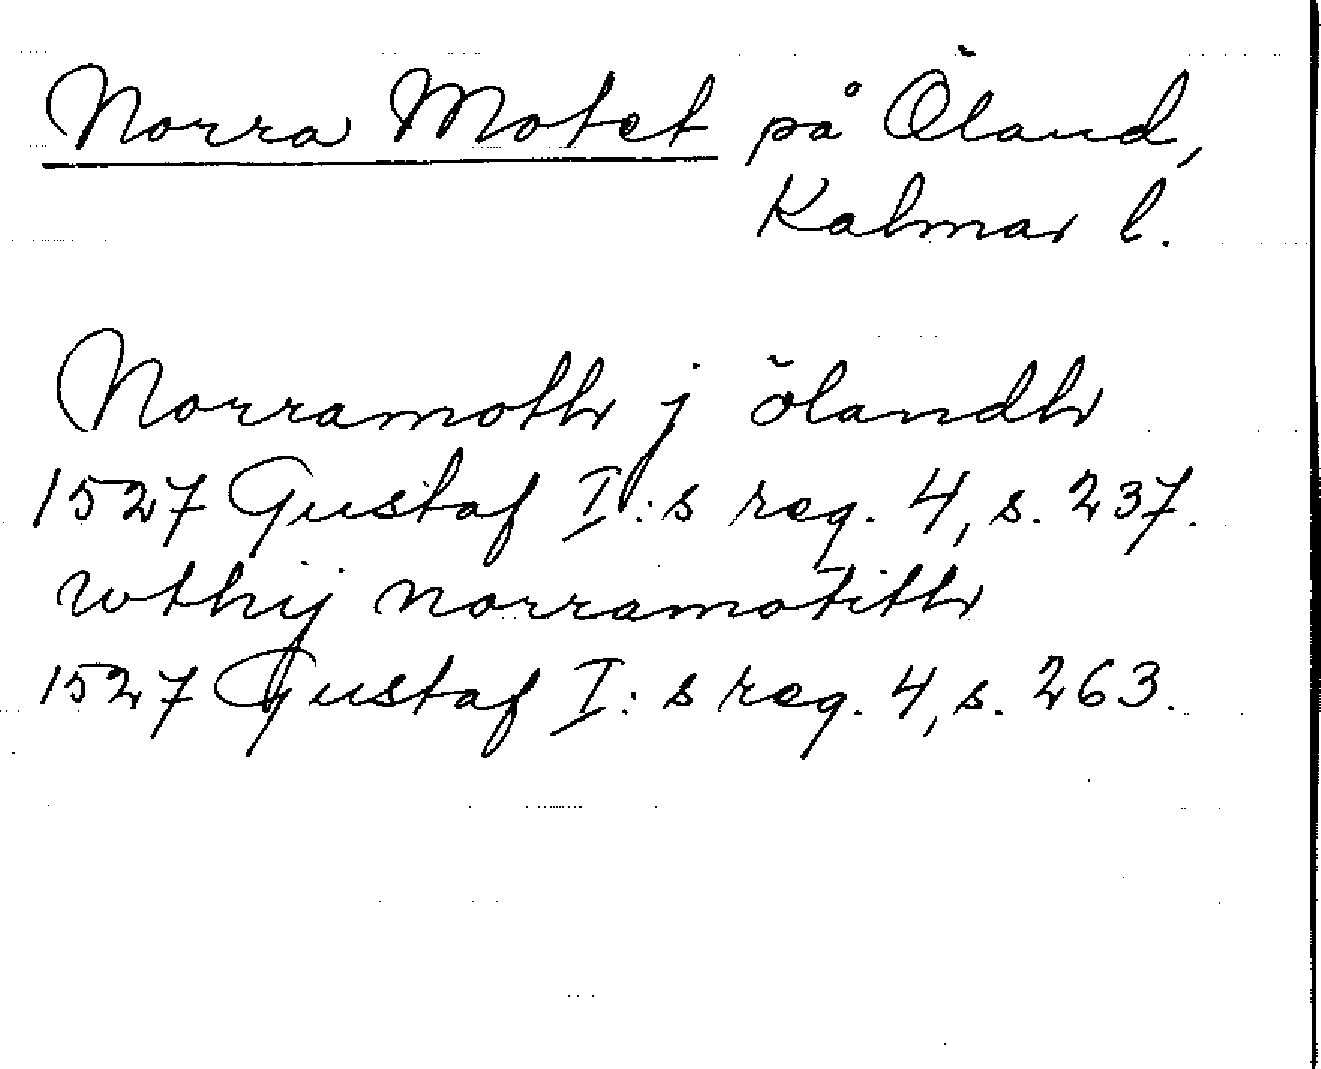 Norra Motet på Öland,
Kalmar l.
Norramoth j ölandh
1527 Gustaf I:s reg. 4, s. 237.
wthij norramotith
1527 Gustaf I:s reg. 4, s. 263.